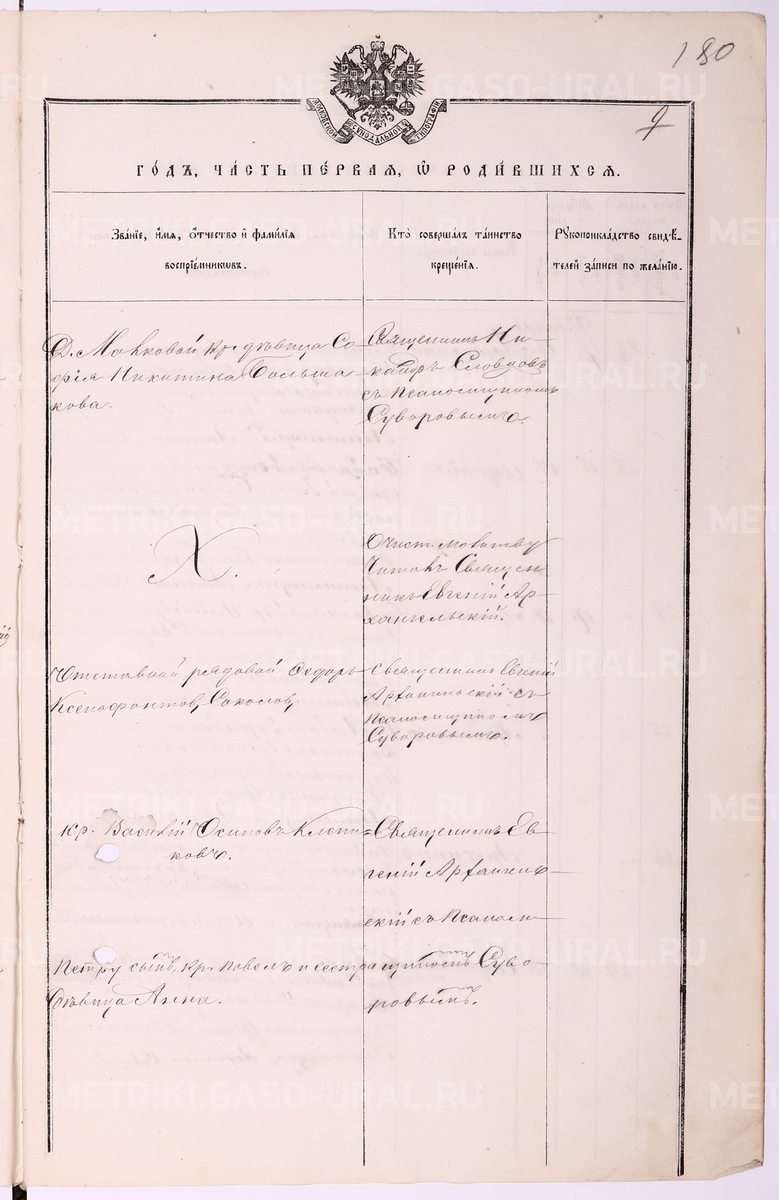 180
9
МОСКОВСКОЙ СѴНОДАЛЬНОЙ ТИПОГРАФІИ
ГО́ДЪ, ЧА́СТЬ ПЕ́РВАЯ, Ѡ РОДИ́ВШИХСЯ.
Зва́ніе, и́мя, о́тчество и фами́лія
воспріе́мниковъ.
Кто̀ соверша́лъ та́инство
креще́нія.
Рукоприкла́дство свидѣ-
телей за́писи по жела́нію.
Д. Маньковой кр. дѣвица Со-
фія Никитина Больша-
кова.
Священникъ Ни-
каноръ Словцовъ
съ псаломщикомъ
Суворовымъ.
Х.
Очист. молитву
читалъ Священ-
никъ Евгений Ар-
хангельскій.
Отставной рядовой Ѳедоръ
Ксенофонтов, Соколов,
Священникъ Евгеній
Архангельскій съ
псаломщикомъ
Суворовымъ.
кр. Василій Осиповъ Клепи-
ковъ.
Священникъ Ев-
геній Архангель-
скій съ псалом-
щикомъ Суво-
ровымъ.
Петру сынъ, кр. Павелъ и сестра
дѣвица Анна.
METRIKI.GASO-URAL.RU